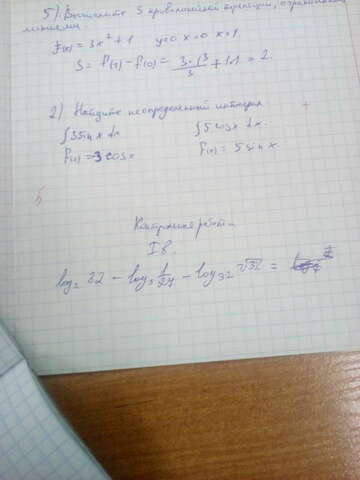 5). Вычислите S криволинейной трапеции, ограниченной
линиями.
F(x) = 3x² + 1 y=0 x=0 x=1.
S = F(1) - F(0) = 3·1³/3 + 1·1 = 2.
2) Найдите неопределенный интеграл
∫3sin x dx ∫5cosx dx.
F(x) = 3cosx F(x) = 5sin x.
5
Контрольная работа
I в.
log₂ 32 - log₃ 1/27 - log₃₂ √32 =